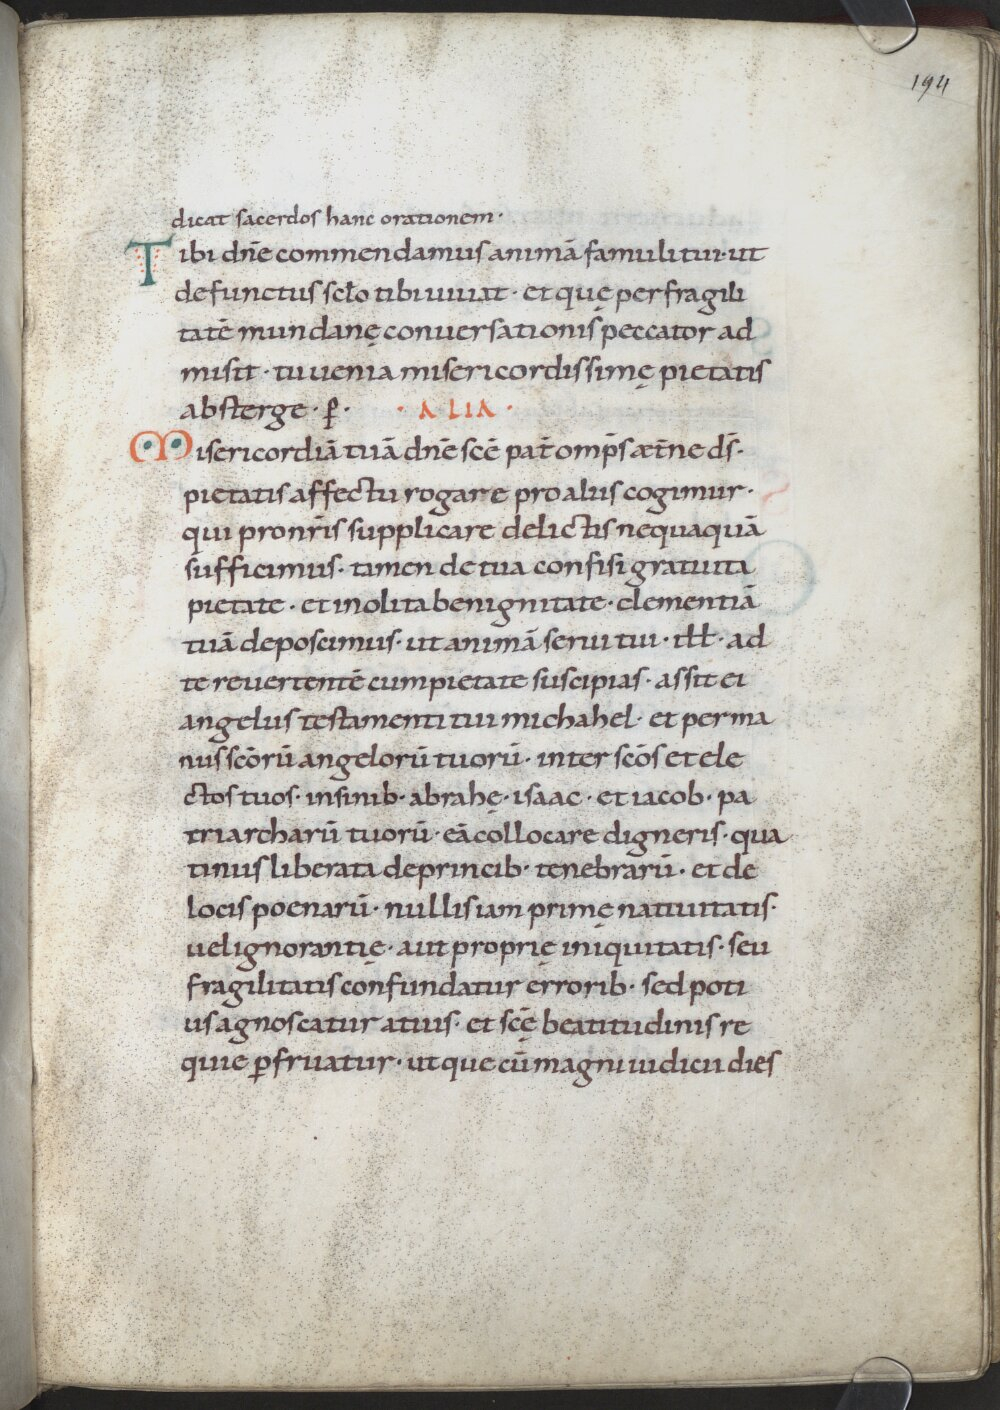 194
dicat sacerdos hanc orationem·
Tibi dn̄e commendamus animā famuli tui· ut
defunctus sc̄lo tibi uiuat· et quę per fragili
tatē mundanę conuersationis peccator ad
misit· tu uenia misericordissimę pietatis
absterge· ꝑ· · ALIA ·
Misericordiā tuā dn̄e sc̄e pat̄ omp̄s æt̄ne ds̄·
pietatis affectu rogare pro aliis cogimur·
qui pro nr̄is supplicare delictis nequaquā
sufficimus· tamen de tua confisi gratuita
pietate· et inolita benignitate· clementiā
tuā deposcimus· ut animā serui tui· ill̄· ad
te reuertentē cum pietate suscipias· assit ei
angelus testamenti tui michahel· et per ma
nus sc̄orū angelorū tuorū· inter sc̄os et ele
ctos tuos· in sinib· abrahę· isaac· et iacob· pa
triarcharū tuorū· eā collocare digneris· qua
tinus liberata de princib· tenebrarū· et de
locis poenarū· nullis iam primę natiuitatis·
uel ignorantię· aut proprię iniquitatis· seu
fragilitatis confundatur errorib· sed poti
us agnoscatur a tuis· et sc̄ę beatitudinis re
quie ꝑfruatur· utque cū magni iudicii dies